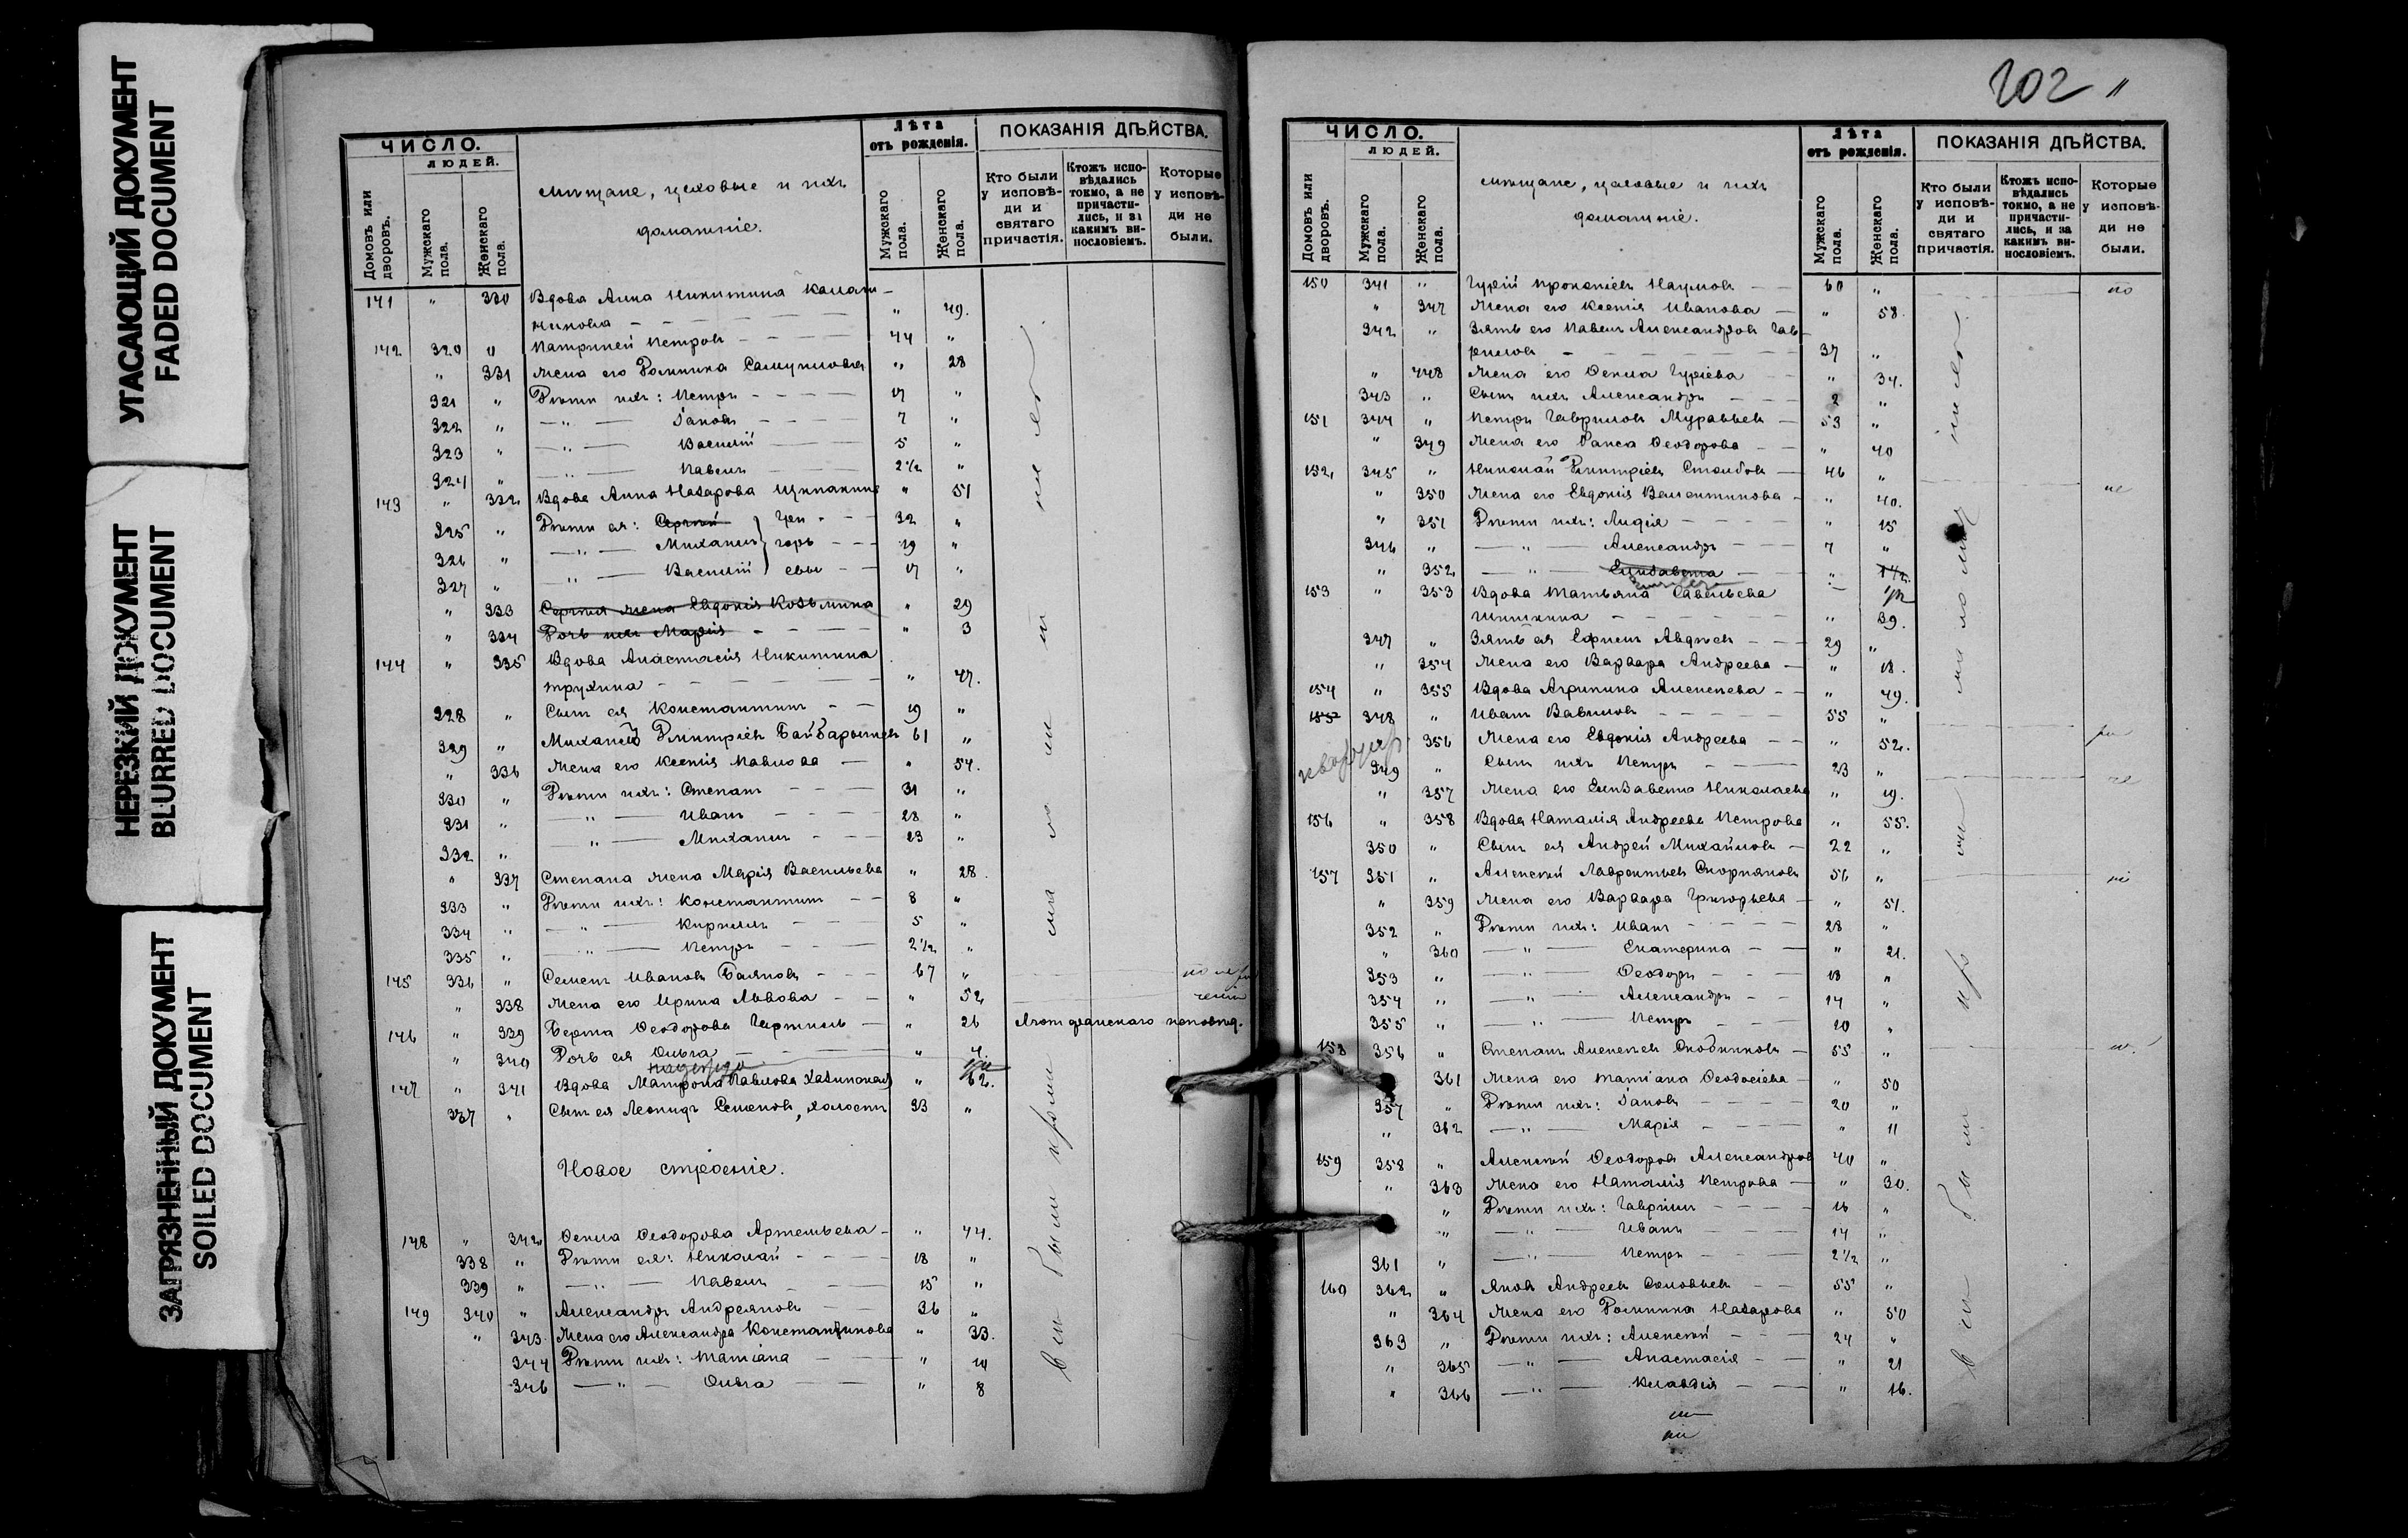 УГАСАЮЩИЙ ДОКУМЕНТ
FADED DOCUMENT
НЕРЕЗКИЙ ДОКУМЕНТ
BLURRED DOCUMENT
ЗАГРЯЗНЕННЫЙ ДОКУМЕНТ
SOILED DOCUMENT
ЧИСЛО.
ЛЮДЕЙ.
Домовъ или дворовъ.
Мужскаго пола.
Женскаго пола.
Мѣщане, цеховые и ихъ
домашніе.
Лѣта
отъ рожденія.
Мужскаго пола.
Женскаго пола.
ПОКАЗАНІЯ ДѢЙСТВА.
Кто были у исповѣди и святаго причастія.
Ктожъ исповѣдались токмо, а не причастились, и за какимъ винословіемъ.
Которые у исповѣди не были.
141 " 330 Вдова Анна Никитина
" 49.
142 320 " Патрикей Петровъ 44 "
" 331 Жена его Домника Самуилова " 28
321 " Дѣти ихъ: Петръ 17 "
322 " —"— Іаковъ 7 "
323 " —"— Василій 5 "
324 " —"— Павелъ 2½ "
143 " 332 Вдова Анна Назарова " 51
325 " Дѣти ея: Сергѣй 32 "
326 " —"— Михаилъ 19 "
327 " —"— Василій 17 "
" 333 Сергѣя жена Евдокія Козьмина " 29
" 334 Дочь ихъ Марія " 3
144 " 335 Вдова Анастасія Никитина
Трухина " 47.
328 " Сынъ ея Константинъ 19 "
329 " Михаилъ Дмитріевъ 61 "
" 336 Жена его Ксенія Павлова " 54.
330 " Дѣти ихъ: Степанъ 31 "
331 " —"— Иванъ 28 "
332 " —"— Михаилъ 23 "
" 337 Степана жена Марія Васильева " 28.
333 " Дѣти ихъ: Константинъ 8 "
334 " —"— Кириллъ 5 "
335 " —"— Петръ 2½ "
145 336 " Семенъ Ивановъ Баяновъ 67 "
" 338 Жена его Ирина Львова " 52
146 " 339 Берта Ѳеодорова " 26 Лютеранскаго исповѣд.
" 340 Дочь ея Ольга
Надежда
147 " 341 Вдова Матрона Павлова " 62.
337 " Сынъ ея Леонидъ Семеновъ, холостъ 33 "
Новое строеніе.
148 " 342 Ѳекла Ѳеодорова Артемьева " 44.
338 " Дѣти ея: Николай 18 "
339 " —"— Павелъ 15 "
149 340 " Александръ Андреяновъ 36 "
" 343 Жена его Александра Константинова " 33.
344 Дѣти ихъ: Татіана " 10
346 —"— Ольга " 8
202
ЧИСЛО.
ЛЮДЕЙ.
Домовъ или дворовъ.
Мужскаго пола.
Женскаго пола.
Мѣщане, цеховые и ихъ
домашніе.
Лѣта
отъ рожденія.
Мужскаго пола.
Женскаго пола.
ПОКАЗАНІЯ ДѢЙСТВА.
Кто были у исповѣди и святаго причастія.
Ктожъ исповѣдались токмо, а не причастились, и за какимъ винословіемъ.
Которые у исповѣди не были.
150 341 " Гурій Прокопіевъ Наумовъ 60 "
" 347 Жена его Ксенія Иванова " 58.
342 " Зять его Павелъ Александровъ Гав-
риловъ 37 "
" 448 Жена его Ѳекла Гуріева " 34.
343 " Сынъ ихъ Александръ 2 "
151 344 " Петръ Гавриловъ Муравьевъ 53 "
" 349 Жена его Раиса Ѳеодорова " 40
152 345 " Николай Дмитріевъ Столбовъ 46 "
" 350 Жена его Евдокія Валентинова " 40.
" 351 Дѣти ихъ: Лидія " 15
346 " —"— Александръ 7 "
" 352 —"— Елизавета " 1½
153 " 353 Вдова Татьяна Савельева
Шишкина " 39.
347 " Зять ея Ефимъ Авдѣевъ 29 "
" 354 Жена его Варвара Андреева " 18.
154 " 355 Вдова Агрипина Алексеева " 49.
155 348 " Иванъ Вавиловъ 55 "
356 Жена его Евдокія Андреева " 52.
349 " Сынъ ихъ Петръ 23 "
" 357 Жена его Елизавета Николаева " 19.
156 " 358 Вдова Наталія Андреева Петрова " 55.
350 " Сынъ ея Андрей Михайловъ 22 "
157 351 " Алексѣй Лаврентьевъ Скорняковъ 56 "
" 359 Жена его Варвара Григорьева " 51.
352 " Дѣти ихъ: Иванъ 28 "
" 360 —"— Екатерина " 21.
353 " —"— Ѳеодоръ 18 "
354 " —"— Александръ 14 "
355 " —"— Петръ 10 "
158 356 " Степанъ Алексѣевъ Скобниковъ 55 "
361 Жена его Татіана Ѳеодосіева " 50
357 " Дѣти ихъ: Іаковъ 20 "
" 362 —"— Марія " 11
159 358 " Алексѣй Ѳеодоровъ Александровъ 40 "
" 363 Жена его Наталія Петрова " 30.
" Дѣти ихъ: Гавріилъ 16 "
" —"— Иванъ 14 "
361 " —"— Петръ 2½ "
160 362 " Яковъ Андреевъ Соловьевъ 55 "
" 364 Жена его Домника Назарова " 50
363 " Дѣти ихъ: Алексѣй 24 "
" 365 —"— Анастасія " 21
" 366 —"— Клавдія " 16.